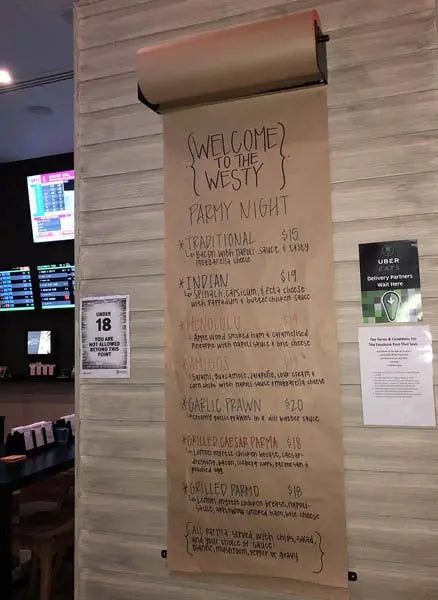 {WELCOME
TO THE
WESTY}
PARMY NIGHT
*TRADITIONAL $15
↳ Bacon with napoli sauce & tasty
mozzarella cheese
*INDIAN $19
↳ Spinach, capsicum, & feta cheese
with pappadum & butter chicken sauce
*HONOLULU $19
↳ Applewood smoked ham & caramelised
pineapple with napoli sauce & brie cheese
*AMIGOS $19
↳ Salami, guacamole, jalapeño, sour cream &
corn chips with napoli sauce & mozzarella cheese
*GARLIC PRAWN $20
↳ creamy garlic prawns in a dill butter sauce
*GRILLED CAESAR PARMA $18
↳ Lemon myrtle chicken breast, caesar-
dressing, bacon, iceberg cups, parmesan &
poached egg
*GRILLED PARMO $18
↳ Lemon myrtle chicken breast, napoli-
sauce, applewood smoked ham, brie cheese
{All parma served with chips, salad,
and your choice of sauce:
dianne, mushroom, pepper or gravy}
UNDER
18
YOU ARE
NOT ALLOWED
BEYOND THIS
POINT
UBER
EATS
Delivery Partners
Wait Here
The Terms & Conditions For
The Facebook Post That Says: